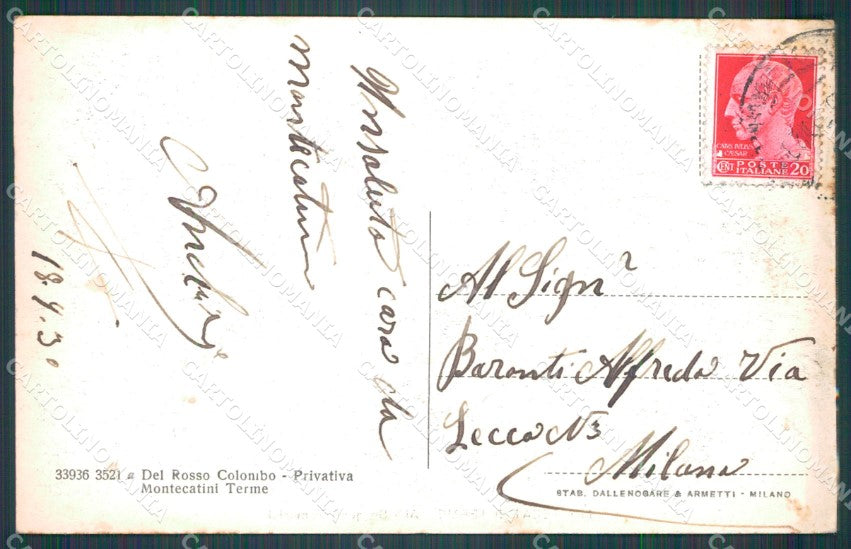 Un saluto caro da
Montecatini
18.4.30
Al Sigʳ
Baronti Alfredo Via
Lecco N 3
Milano
33936 3521 a Del Rosso Colombo - Privativa
Montecatini Terme
STAB. DALLENOGARE & ARMETTI - MILANO
CAIVS IVLIVS
CAESAR
CENT POSTE ITALIANE 20
CARTOLINOMANIA